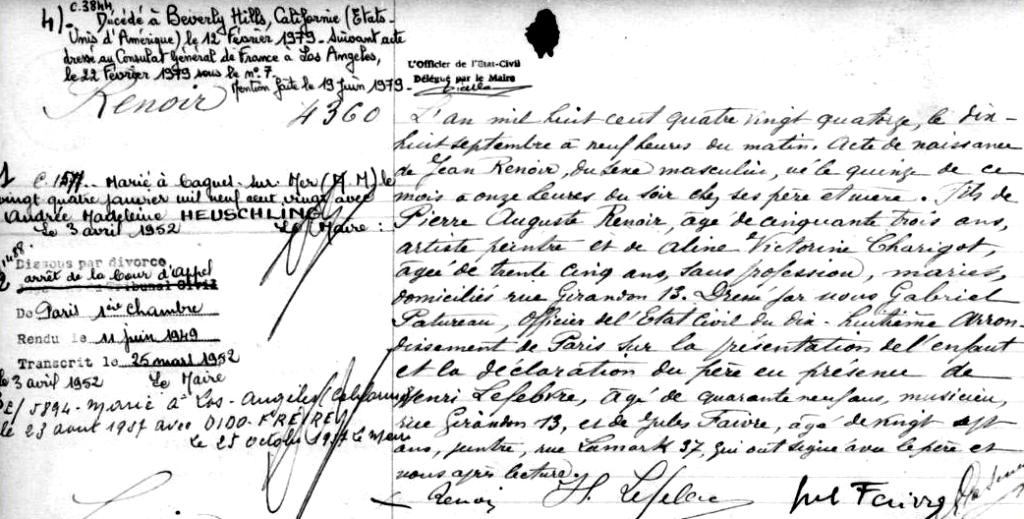 4)- C. 3844
Décédé à Beverly Hills, Californie (Etats-
Unis d'Amérique) le 12 Février 1979 - Suivant acte
dressé au Consulat Général de France à Los Angeles,
le 22 Février 1979 sous le n° 7.
Mention faite le 19 Juin 1979-
L'Officier de l'Etat-Civil
Délégué par le Maire
Renoir
4360
1
C. Marié à Cagnes-sur-Mer (A.M) le
vingt quatre janvier mil neuf cent vingt avec
Andrée Madeleine HEUSCHLING
Le 3 avril 1952 Le Maire :
2
Dissous par divorce
arrêt de la Cour d'Appel
De Paris 1ère Chambre
Rendu le 11 juin 1949
Transcrit le 25 mars 1952
le 3 avril 1952 Le Maire
5894 - Marié à Los-Angeles (Californie)
le 23 avec DIDO-FREIRE
Le 25 octobre 1957 Le Maire
L'an mil huit cent quatre vingt quatorze, le dix-
huit septembre à neuf heures du matin. Acte de naissance
de Jean Renoir, du sexe masculin, né le quinze de ce
mois à onze heures du soir chez ses père et mère. Fils de
Pierre Auguste Renoir, âgé de cinquante trois ans,
artiste peintre et de Aline Victorine Charigot,
agée de trente cinq ans, sans profession, mariés,
domiciliés rue Girardon 13. Dressé par nous Gabriel
Patureau, Officier de l'Etat Civil du dix-huitième arron-
dissement de Paris sur la présentation de l'enfant
et la déclaration du père en présence de
Henri Lefebvre, âgé de quarante neuf ans, musicien,
rue Girardon 13, et de Jules Faivre, âgé de vingt sept
ans, peintre, rue Lamark 37, qui ont signé avec le père et
nous après lecture.
Renoir H. Lefebvre Jul Faivre